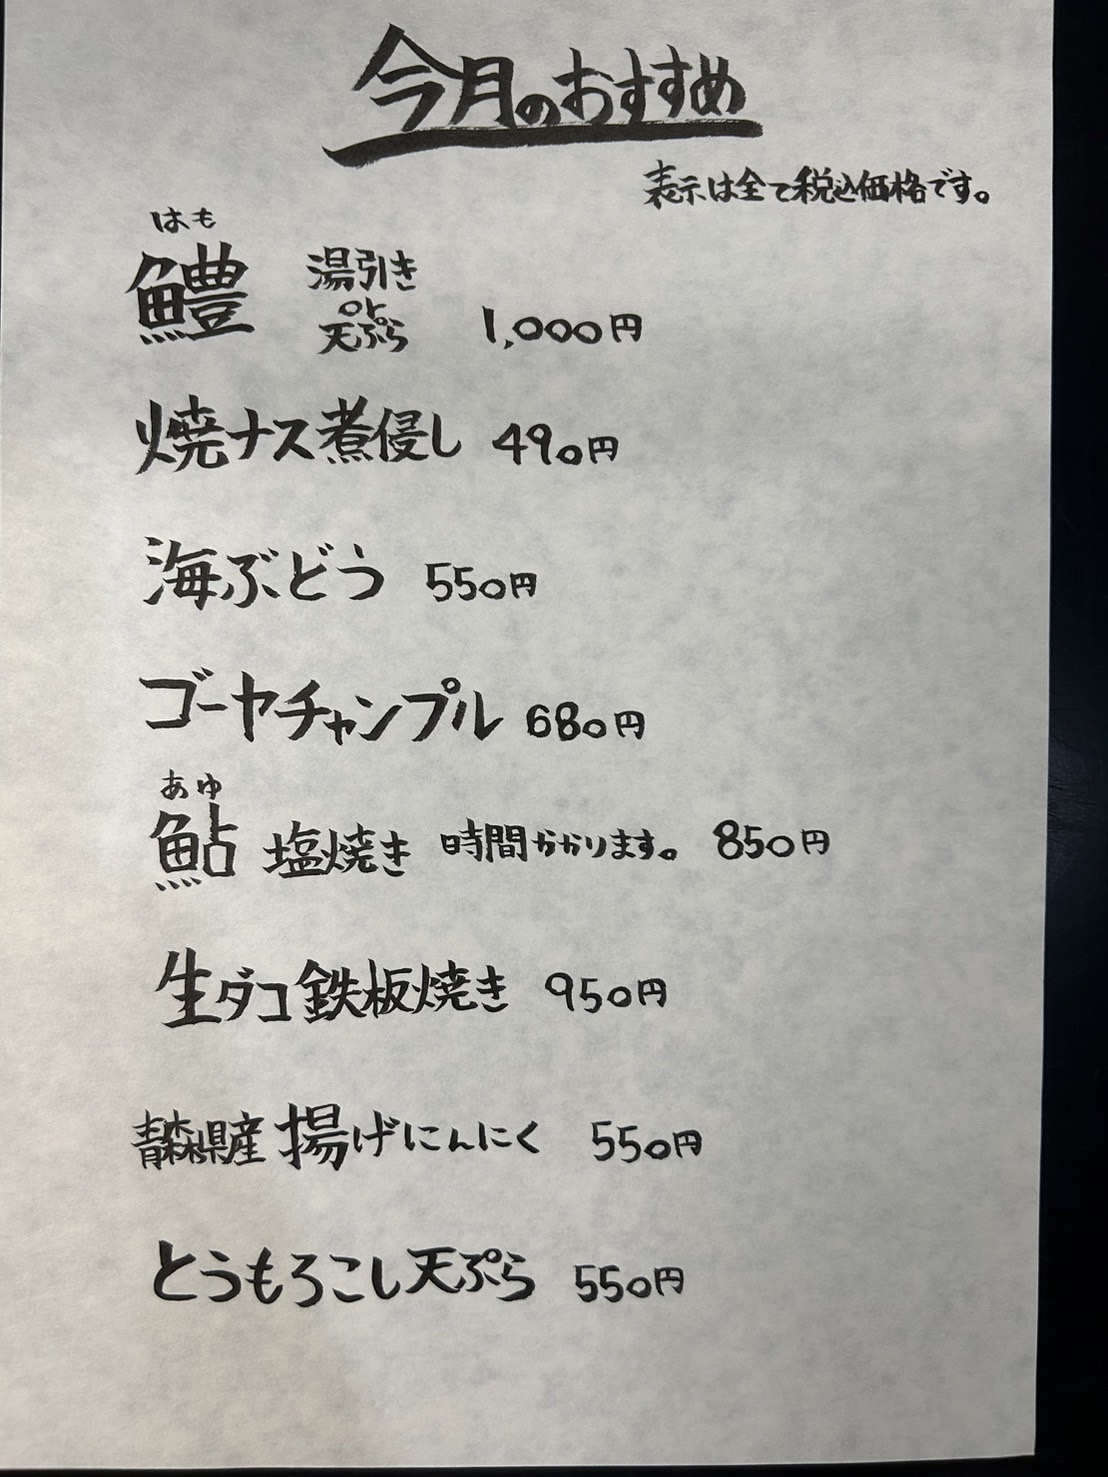 今月のおすすめ
表示は全て税込価格です。
はも
鱧 湯引き or 天ぷら 1,000円
焼ナス煮侵し 490円
海ぶどう 550円
ゴーヤチャンプル 680円
あゆ
鮎 塩焼き 時間かかります。 850円
生ダコ鉄板焼き 950円
青森県産 揚げにんにく 550円
とうもろこし天ぷら 550円